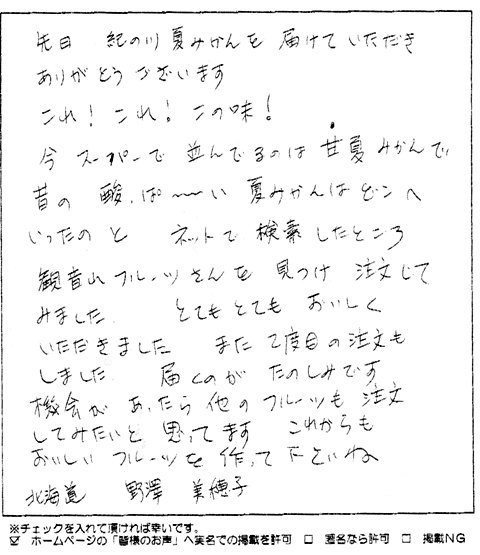 先日 紀の川夏みかんを 届けていただき
ありがとうございます
これ! これ! この味!
今 スーパーで 並んでるのは 甘夏みかんで
昔の 酸っぱ〜〜い 夏みかんは どこへ
いったのと ネットで 検索したところ
観音山フルーツさんを 見つけ 注文して
みました とてもとても おいしく
いただきました また 2度目の注文も
しました 届くのが たのしみです
機会が あったら 他のフルーツも 注文
してみたいと 思ってます これからも
おいしい フルーツを 作って下さいね
北海道 野澤 美穂子
※チェックを入れて頂ければ幸いです。
☑ ホームページの「皆様のお声」へ実名での掲載を許可 □ 匿名なら許可 □ 掲載NG